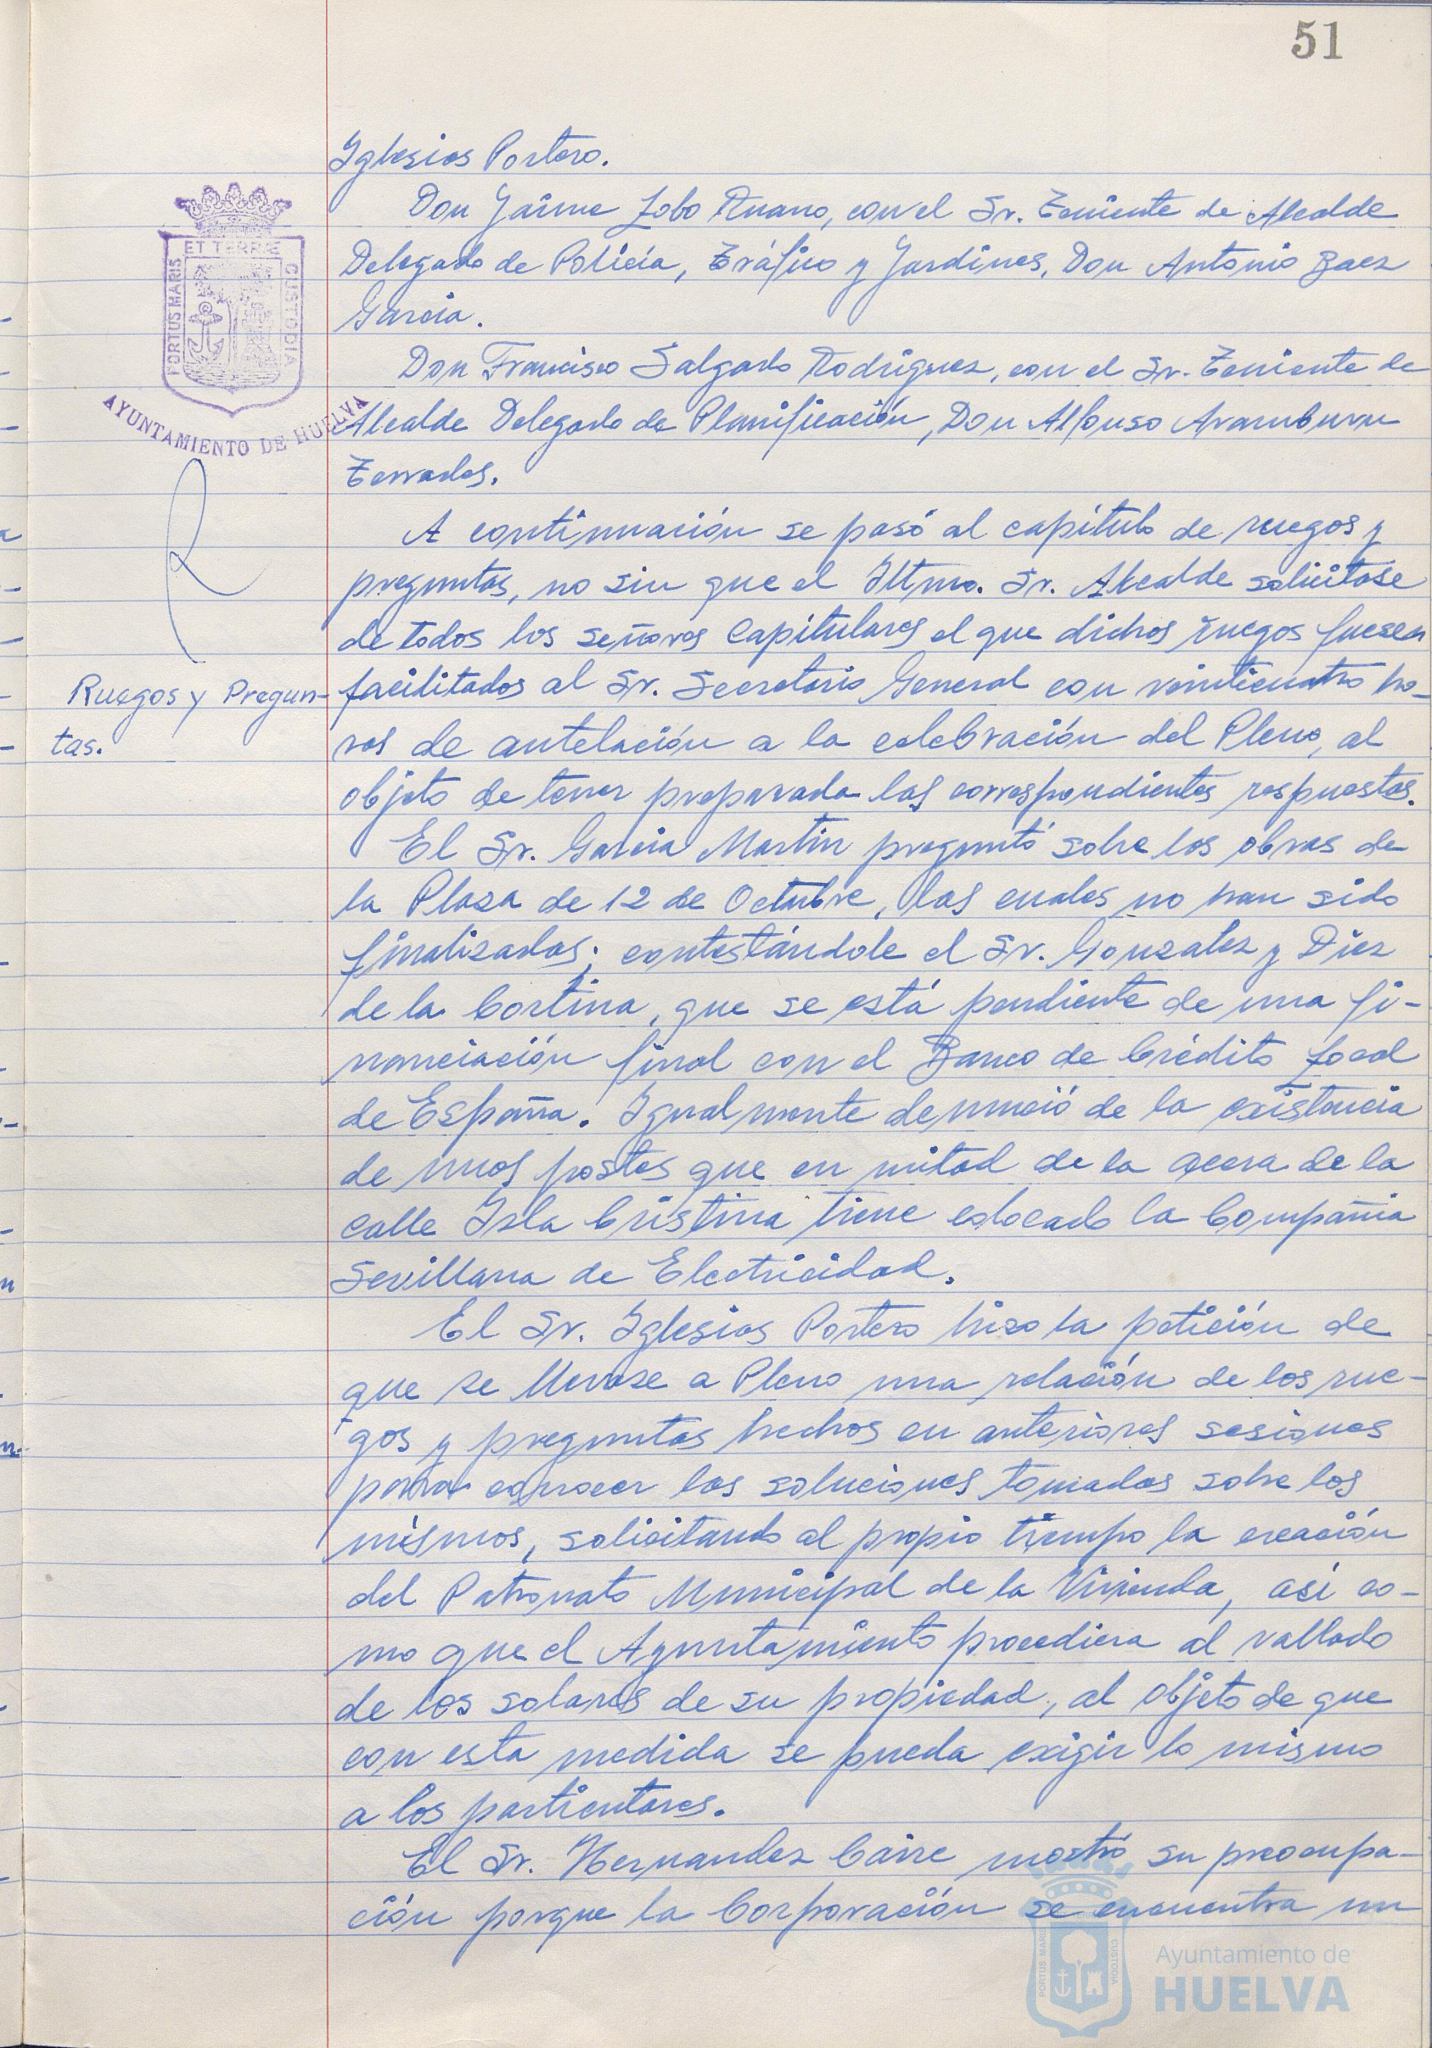 51
Iglesias Portero.
Don Jaime Lobo Ruano, con el Sr. Teniente de Alcalde
Delegado de Policía, Tráfico y Jardines, Don Antonio Baez
García.
Don Francisco Salgado Rodríguez, con el Sr. Teniente de
Alcalde Delegado de Planificación, Don Alfonso Aramburu
Terrades.
ET TERRÆ
PORTUS MARIS
CUSTODIA
AYUNTAMIENTO DE HUELVA
A continuación se pasó al capítulo de ruegos y
preguntas, no sin que el Iltmo. Sr. Alcalde solicitase
de todos los señores Capitulares el que dichos ruegos fuesen
Ruegos y Pregun-
tas.
faciditados al Sr. Secretario General con veinticuatro ho-
ras de antelación a la celebración del Pleno, al
objeto de tener preparada las correspondientes respuestas.
El Sr. García Martin preguntó sobre las obras de
la Plaza de 12 de Octubre, las cuales no han sido
finalizadas; contestándole el Sr. Gonzalez y Diez
de la Cortina, que se está pendiente de una fi-
nanciación final con el Banco de Crédito Local
de España. Igualmente denunció de la existencia
de unos postes que en mitad de la acera de la
calle Isla Cristina tiene colocado la Compañia
Sevillana de Electricidad.
El Sr. Iglesias Portero hizo la petición de
que se llevase a Pleno una relación de los rue-
gos y preguntas hechos en anteriores sesiones
para conocer las soluciones tomadas sobre los
mismos, solicitando al propio tiempo la creación
del Patronato Municipal de la Vivienda, asi co-
mo que el Ayuntamiento procediera al vallado
de los solares de su propiedad, al objeto de que
con esta medida se pueda exigir lo mismo
a los particulares.
El Sr. Hernandez Caire mostró su preocupa-
ción porque la Corporación se encuentra un
PORTUS MARIS
CUSTODIA
Ayuntamiento de
HUELVA